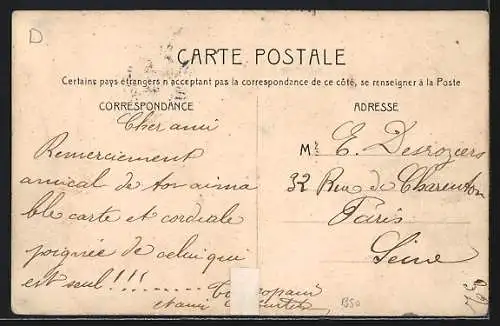 D
CARTE POSTALE
Certains pays étrangers n'acceptant pas la correspondance de ce côté, se renseigner à la Poste
CORRESPONDANCE
Cher ami
Remerciement
amical de ton aima
ble carte et cordiale
poignée de celui qui
est seul !!!
et ami
ADRESSE
Mr E. Desroziers
32 Rue de Charenton
Paris
Seine
1350